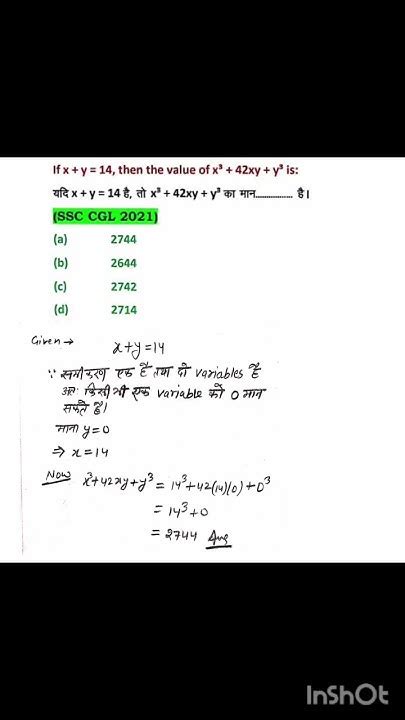 If x + y = 14, then the value of x³ + 42xy + y³ is:
यदि x + y = 14 है, तो x³ + 42xy + y³ का मान................ है।
(SSC CGL 2021)
(a) 2744
(b) 2644
(c) 2742
(d) 2714
Given → x+y=14
∵ समीकरण एक है तथा दो variables है
अतः किसी भी एक variable को 0 मान
सकते है।
माना y=0
⇒ x=14
Now x³+42xy+y³ = 14³+42(14)(0)+0³
= 14³+0
= 2744 Ans
InShOt